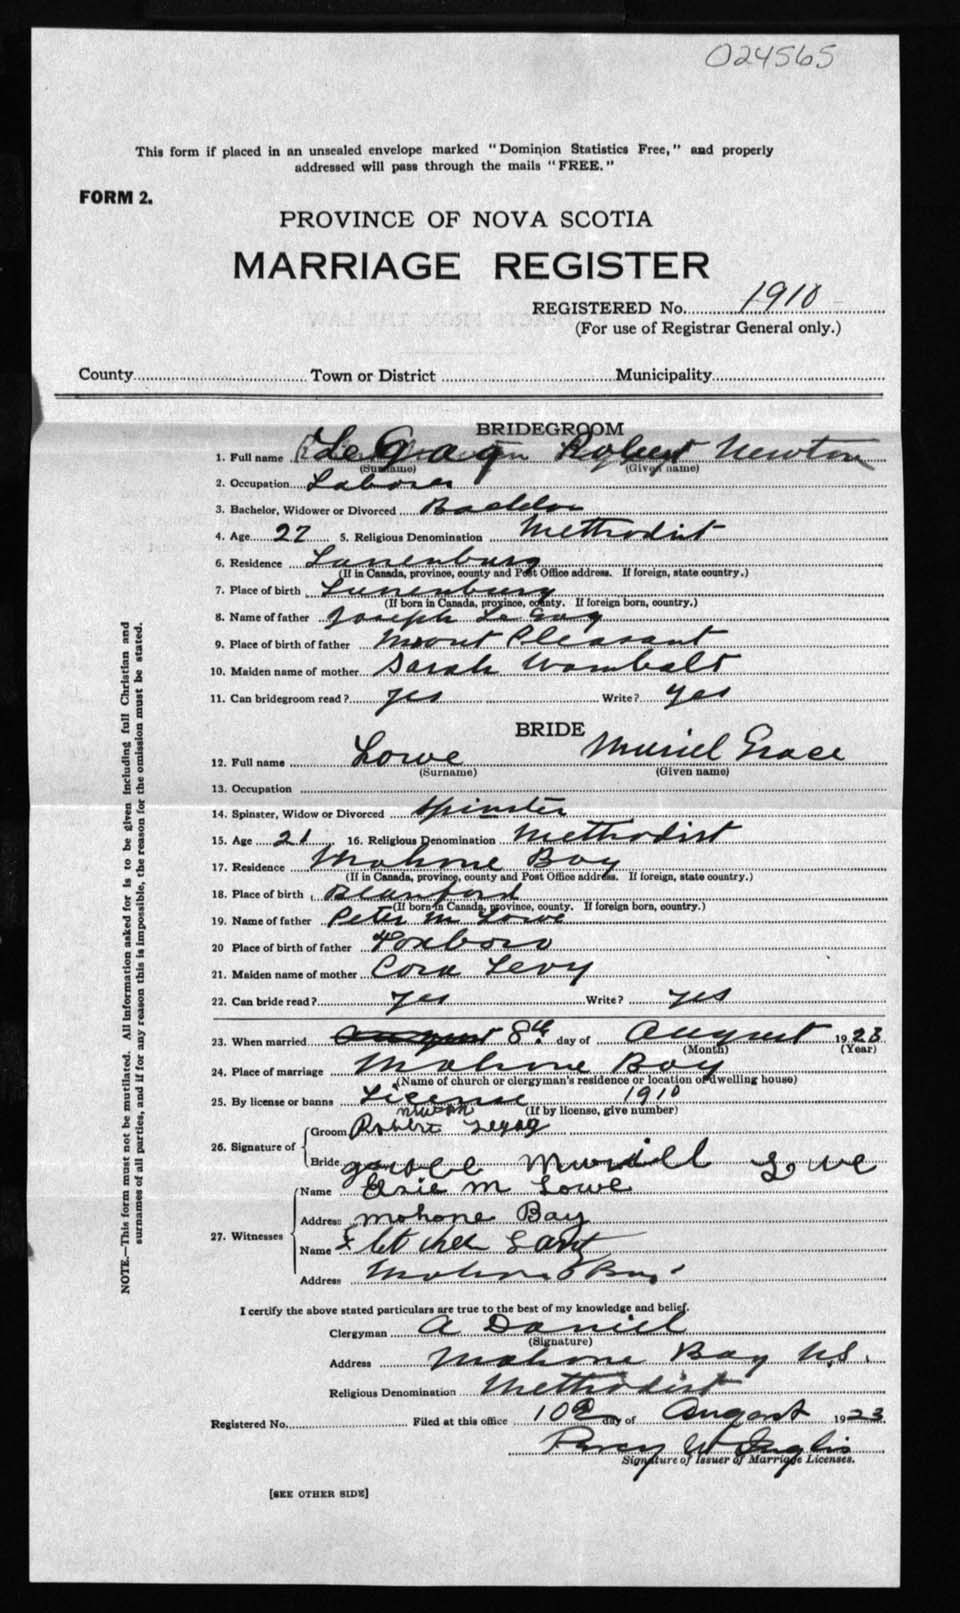 024565
This form if placed in an unsealed envelope marked "Dominion Statistics Free," and properly
addressed will pass through the mails "FREE."
FORM 2.
PROVINCE OF NOVA SCOTIA
MARRIAGE REGISTER
REGISTERED No. 1910
(For use of Registrar General only.)
County Town or District Municipality
BRIDEGROOM
1. Full name LeGag Robert Newton
(Surname) (Given name)
2. Occupation Laborer
3. Bachelor, Widower or Divorced Bachelor
4. Age 27 5. Religious Denomination Methodist
6. Residence Lunenburg
(If in Canada, province, county and Post Office address. If foreign, state country.)
7. Place of birth Lunenburg
(If born in Canada, province, county. If foreign born, country.)
8. Name of father Joseph LeGag
9. Place of birth of father Mount Pleasant
10. Maiden name of mother Sarah Wambalt
11. Can bridegroom read? yes Write? yes
BRIDE
12. Full name Lowe Muriel Grace
(Surname) (Given name)
13. Occupation
14. Spinster, Widow or Divorced Spinster
15. Age 21 16. Religious Denomination Methodist
17. Residence Mahone Bay
(If in Canada, province, county and Post Office address. If foreign, state country.)
18. Place of birth Blanford
(If born in Canada, province, county. If foreign born, country.)
19. Name of father Peter M Lowe
20 Place of birth of father Foxboro
21. Maiden name of mother Cora Levy
22. Can bride read? yes Write? yes
23. When married 8th day of August 1923
(Month) (Year)
24. Place of marriage Mahone Bay
(Name of church or clergyman's residence or location of dwelling house)
25. By license or banns License 1910
(If by license, give number)
26. Signature of
Groom Robert Legag
Bride Lowe
27. Witnesses
Name Elsie M Lowe
Address Mahone Bay
Name
Address Mahone Bay
I certify the above stated particulars are true to the best of my knowledge and belief.
Clergyman A Daniel
(Signature)
Address Mahone Bay N.S.
Religious Denomination Methodist
Registered No. Filed at this office 10 day of August 1923
Percy W Inglis
Signature of Issuer of Marriage Licenses.
[SEE OTHER SIDE]
NOTE.—This form must not be mutilated. All information asked for is to be given including full Christian and
surnames of all parties, and if for any reason this is impossible, the reason for the omission must be stated.